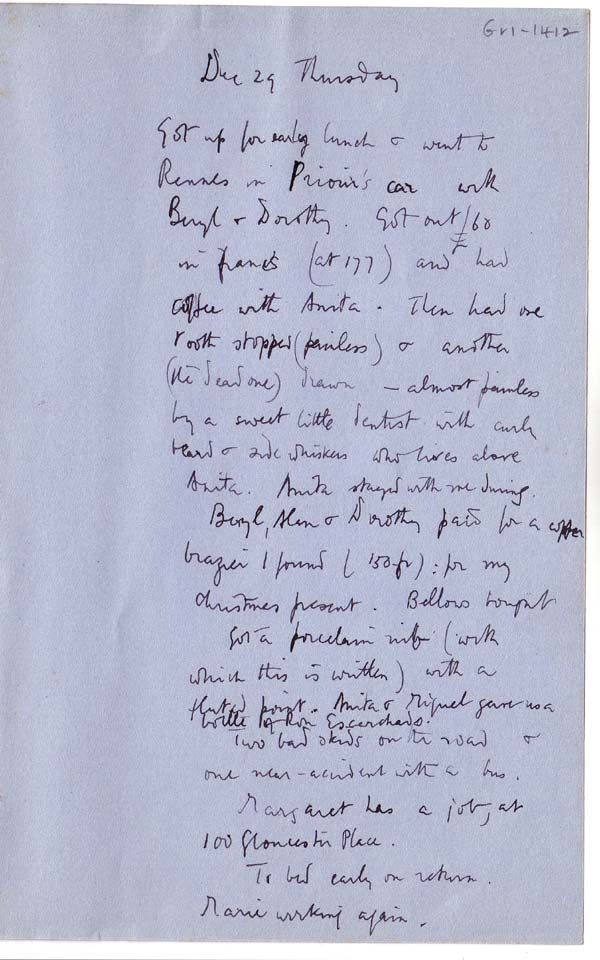 Gr1-1412
Dec 29 Thursday
Got up for early lunch & went to
Rennes in Prioux's car with
Beryl & Dorothy. Got out £60
in francs (at 177) and had
coffee with Anita. Then had one
tooth stopped (painless) & another
(the dead one) drawn - almost painless
by a sweet little dentist with curly
beard & side whiskers who lives above
Anita. Anita stayed with me during.
Beryl, Alan & Dorothy paid for a copper
brazier I found (150 fr): for my
Christmas present. Bellows bought
Got a porcelain nib (with
which this is written) with a
fluted point. Anita & Miguel gave us a
bottle of Ron Escarchado.
Two bad skids on the road &
one near-accident with a bus.
Margaret has a job, at
100 Gloucester Place.
To bed early on return.
Marie working again.